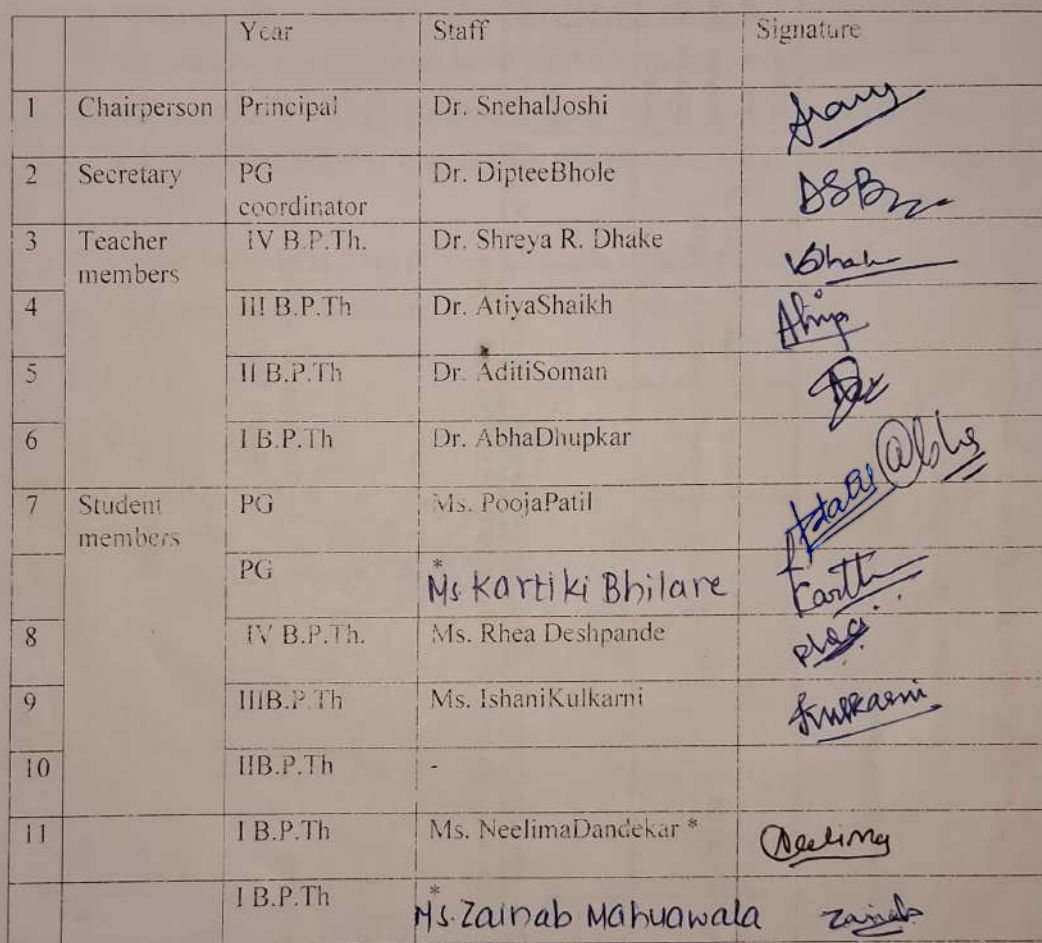 Year Staff Signature
1 Chairperson Principal Dr. SnehalJoshi
2 Secretary PG Dr. DipteeBhole DSB
coordinator
3 Teacher IV B.P.Th. Dr. Shreya R. Dhake
members
4 III B.P.Th Dr. AtiyaShaikh
5 II B.P.Th Dr. AditiSoman
6 I B.P.Th Dr. AbhaDhupkar @bha
7 Student PG Ms. PoojaPatil
members
PG * Ms. Kartiki Bhilare
8 IV B.P.Th. Ms. Rhea Deshpande
9 IIIB.P.Th Ms. IshaniKulkarni Kulkarni
10 IIB.P.Th -
11 I B.P.Th Ms. NeelimaDandekar * Neelima
I B.P.Th * Ms. Zainab Mahuawala Zainab